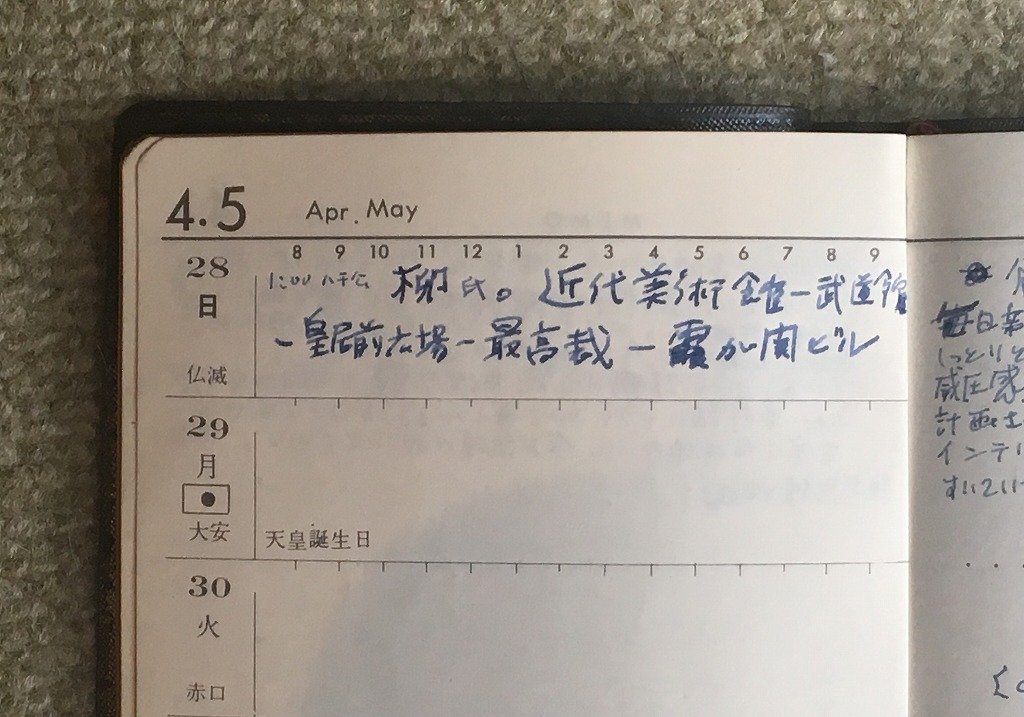 4.5 Apr. May
8 9 10 11 12 1 2 3 4 5 6 7 8 9
28
日
仏滅
柳氏。近代美術館ー武道館
ー皇居前広場ー最高裁ー霞が関ビル
29
月
大安
天皇誕生日
30
火
赤口
毎日
しっとりと
威圧感
計画
インテリ